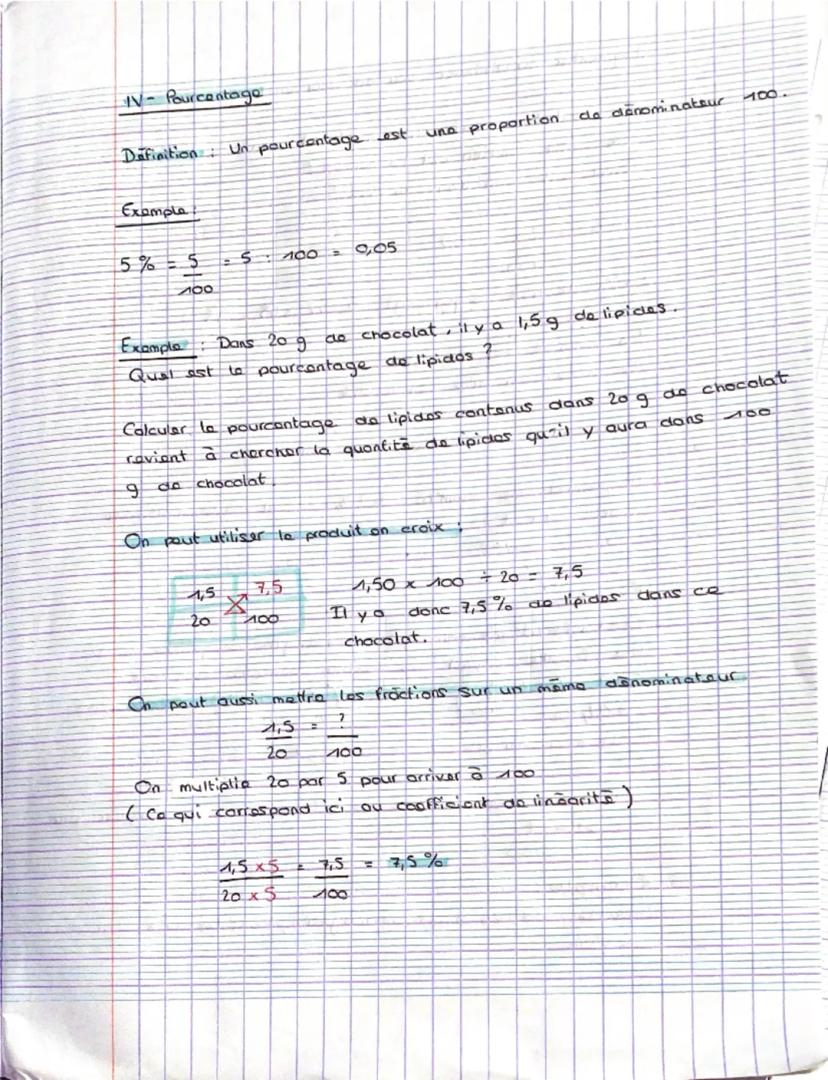 IV - Pourcentage
Définition : Un pourcentage est une proportion de dénominateur 100.
Exemple :
5 % = 5/100 = 5 : 100 = 0,05
Exemple : Dans 20 g de chocolat, il y a 1,5 g de lipides.
Quel est le pourcentage de lipides ?
Calculer le pourcentage de lipides contenus dans 20 g de chocolat
revient à chercher la quantité de lipides qu'il y aura dans 100
g de chocolat.
On peut utiliser le produit en croix :
1,5 7,5 1,50 x 100 ÷ 20 = 7,5
20 100 Il y a donc 7,5 % de lipides dans ce
chocolat.
On peut aussi mettre les fractions sur un même dénominateur
1,5/20 = ?/100
On multiplie 20 par 5 pour arriver à 100
( Ce qui correspond ici au coefficient de linéarité )
1,5 x 5 / 20 x 5 = 7,5/100 = 7,5 %